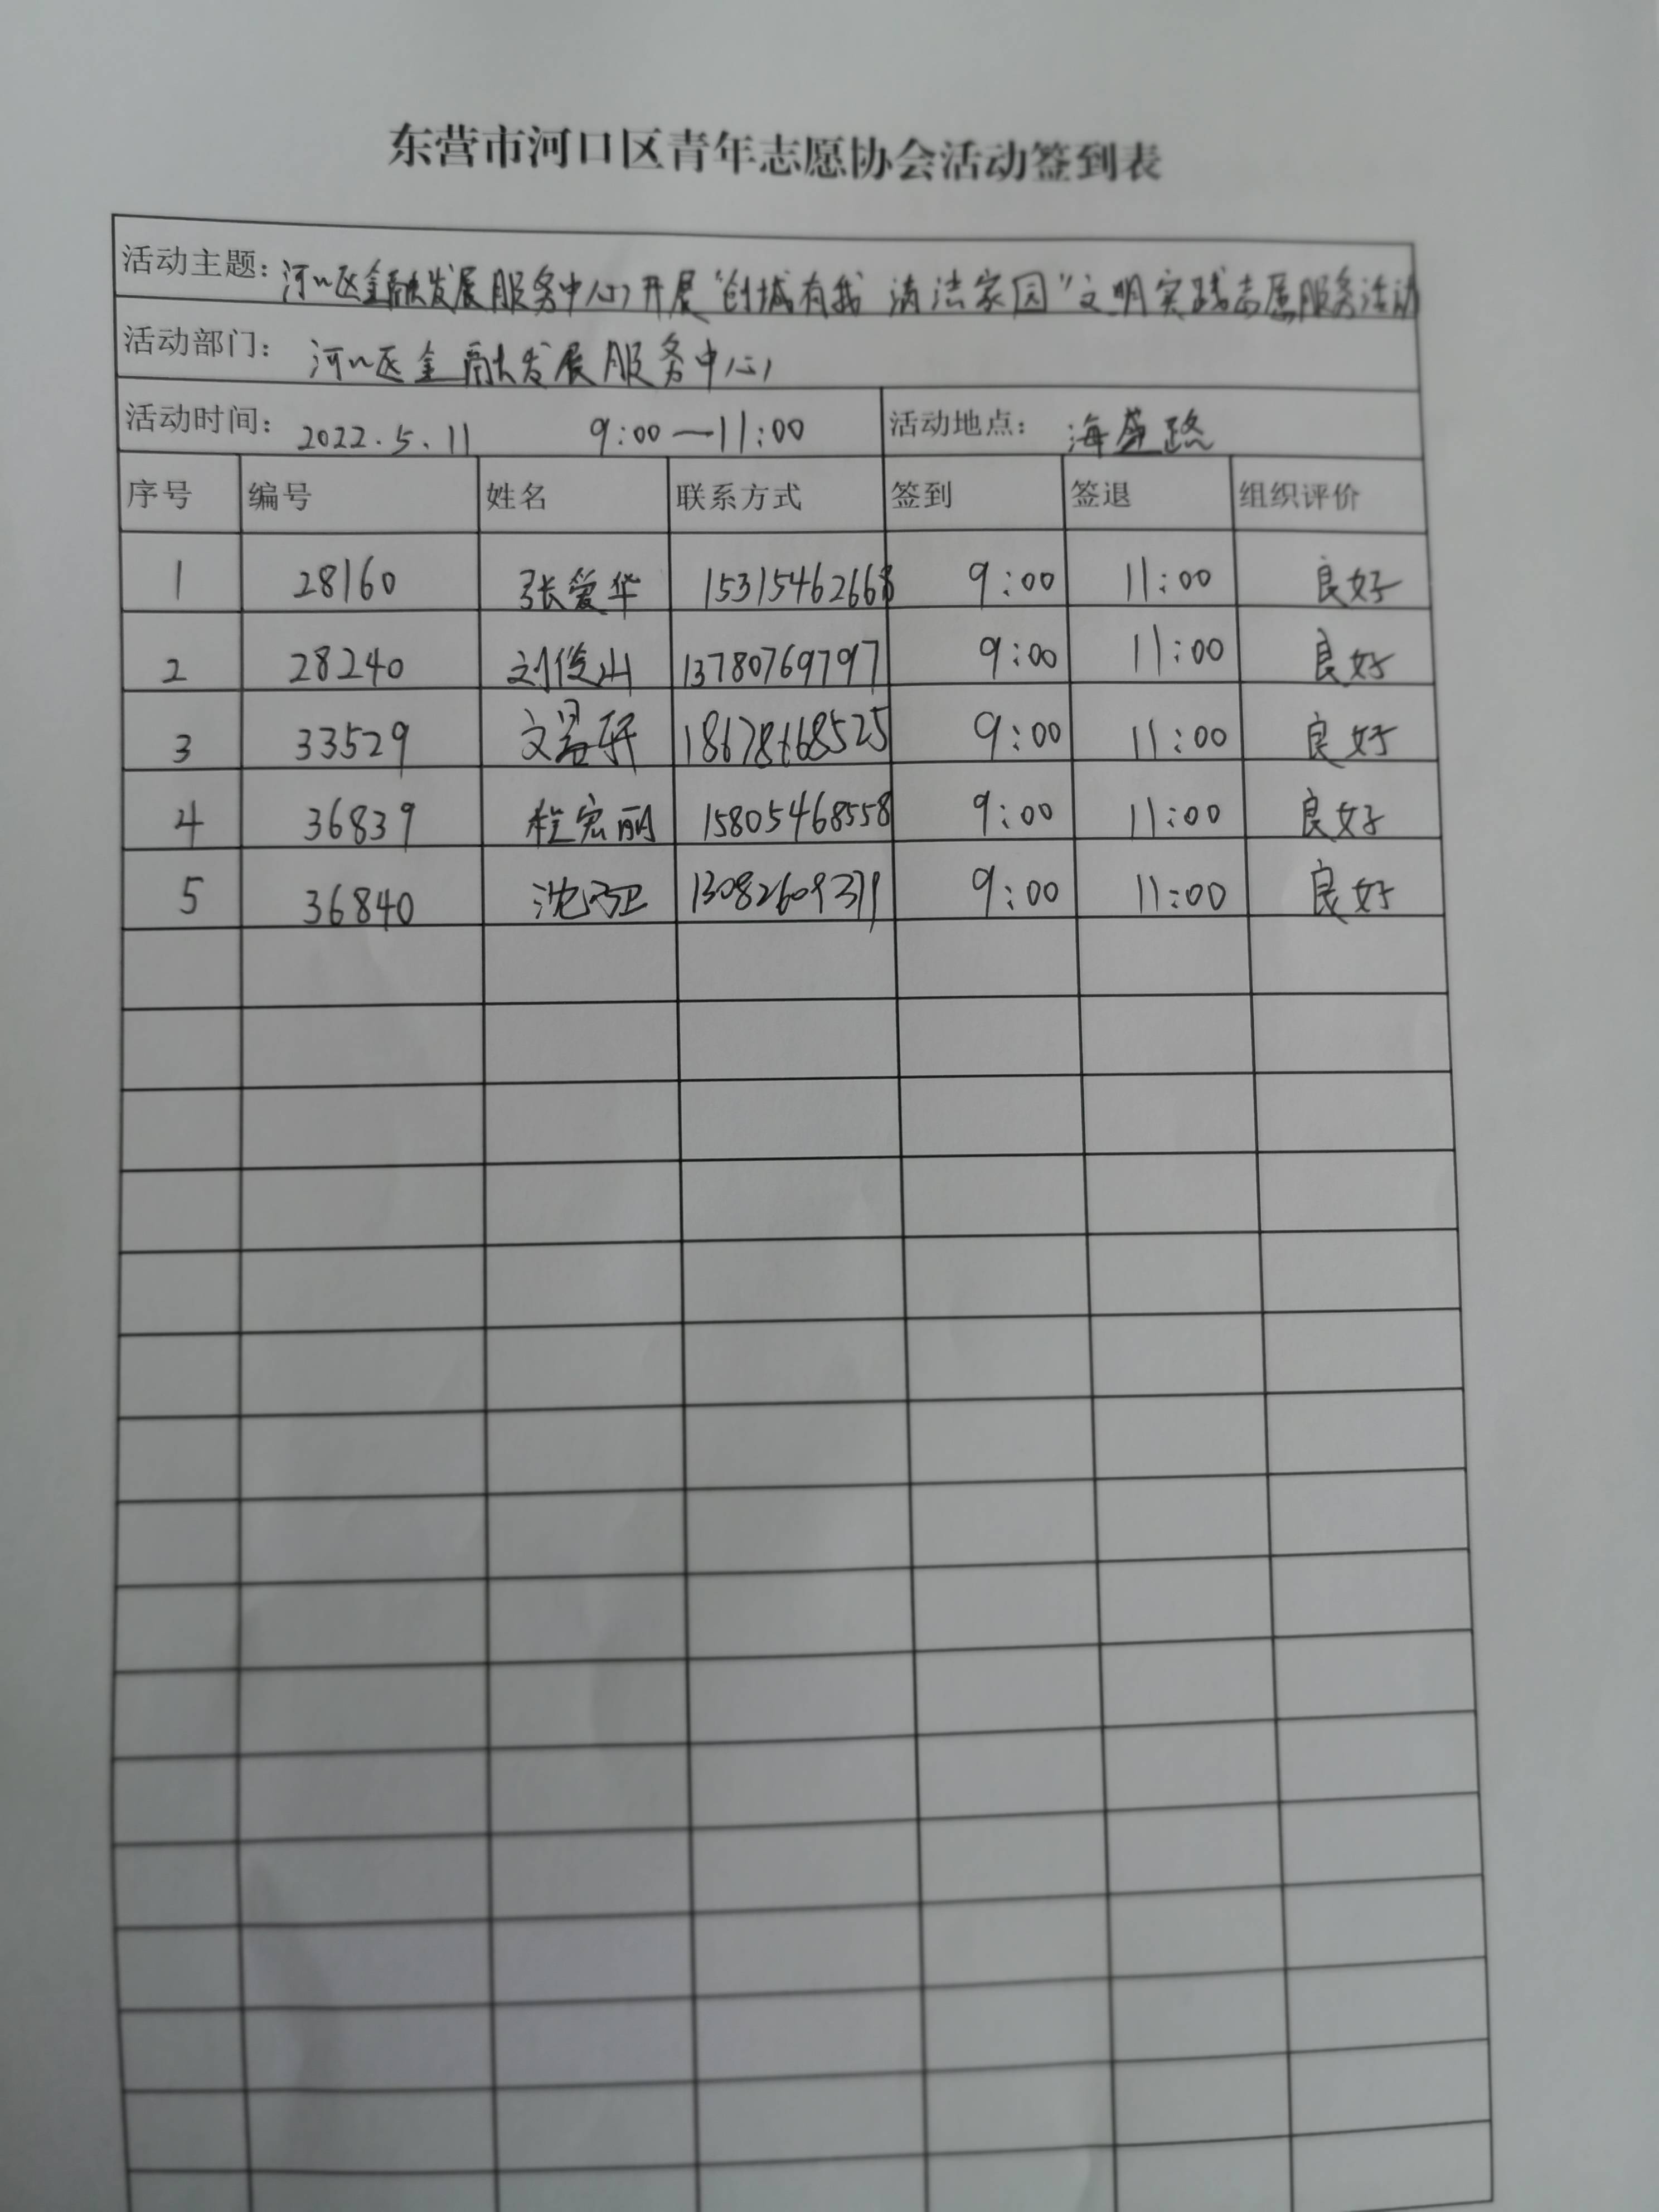 东营市河口区青年志愿协会活动签到表
活动主题：河口区金融发展服务中心开展“创城有我 清洁家园”文明实践志愿服务活动
活动部门：河口区金融发展服务中心
活动时间：2022.5.11 9:00—11:00 活动地点：海盛路
序号 编号 姓名 联系方式 签到 签退 组织评价
1 28160 张爱华 15315462668 9:00 11:00 良好
2 28240 刘俊山 13780769797 9:00 11:00 良好
3 33529 文昱轩 18678668525 9:00 11:00 良好
4 36839 程宏丽 15805468558 9:00 11:00 良好
5 36840 沈 13082609379 9:00 11:00 良好